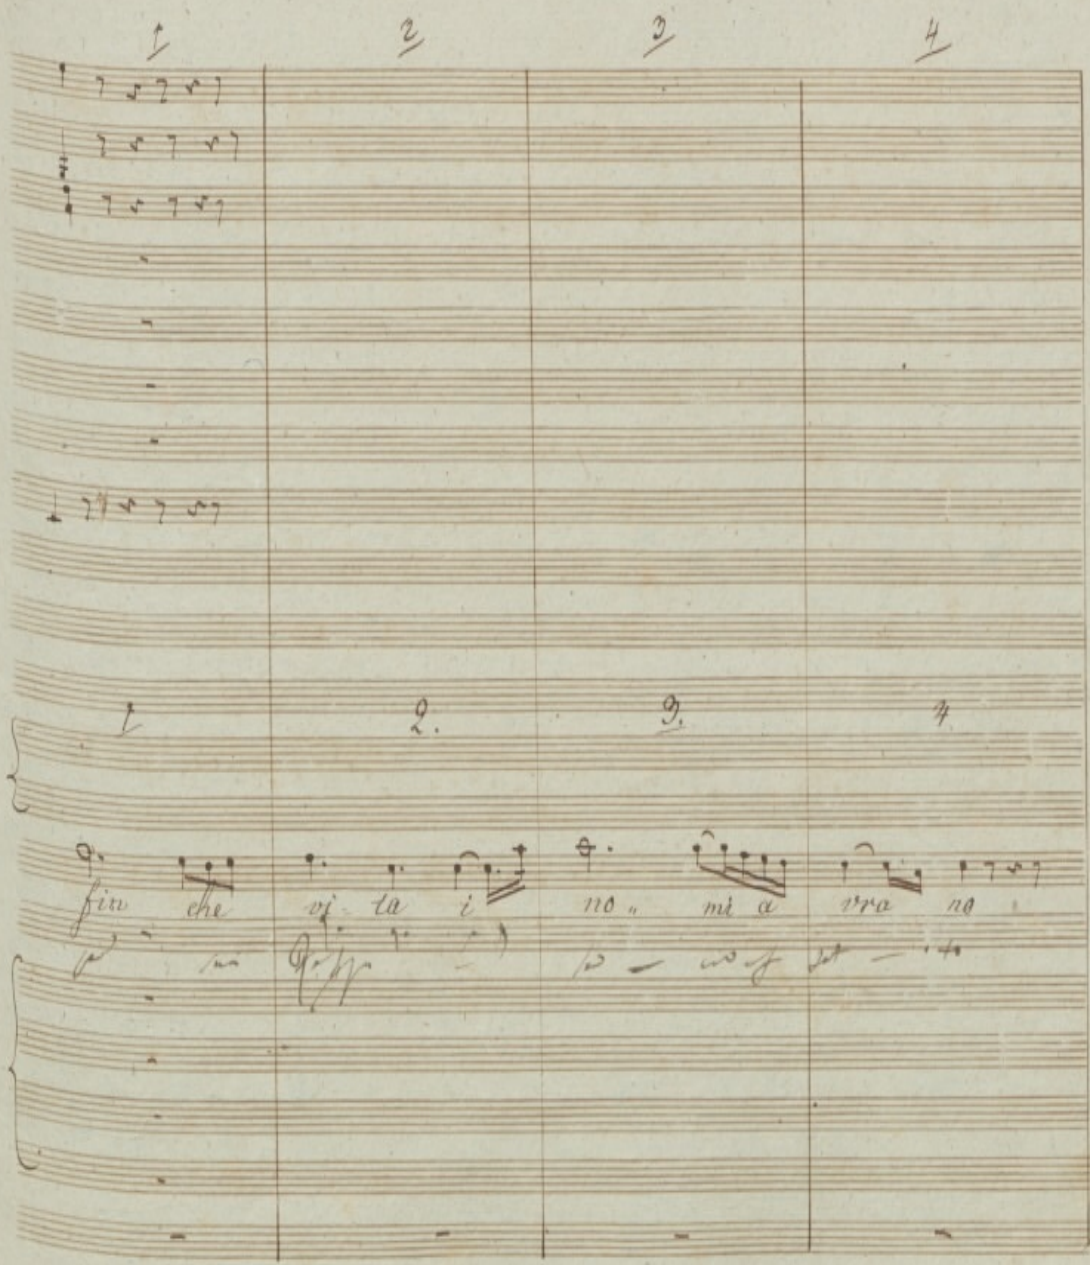 1 2 3 4
1 2. 3. 4
fin che vi - ta i no „ mi a vra no